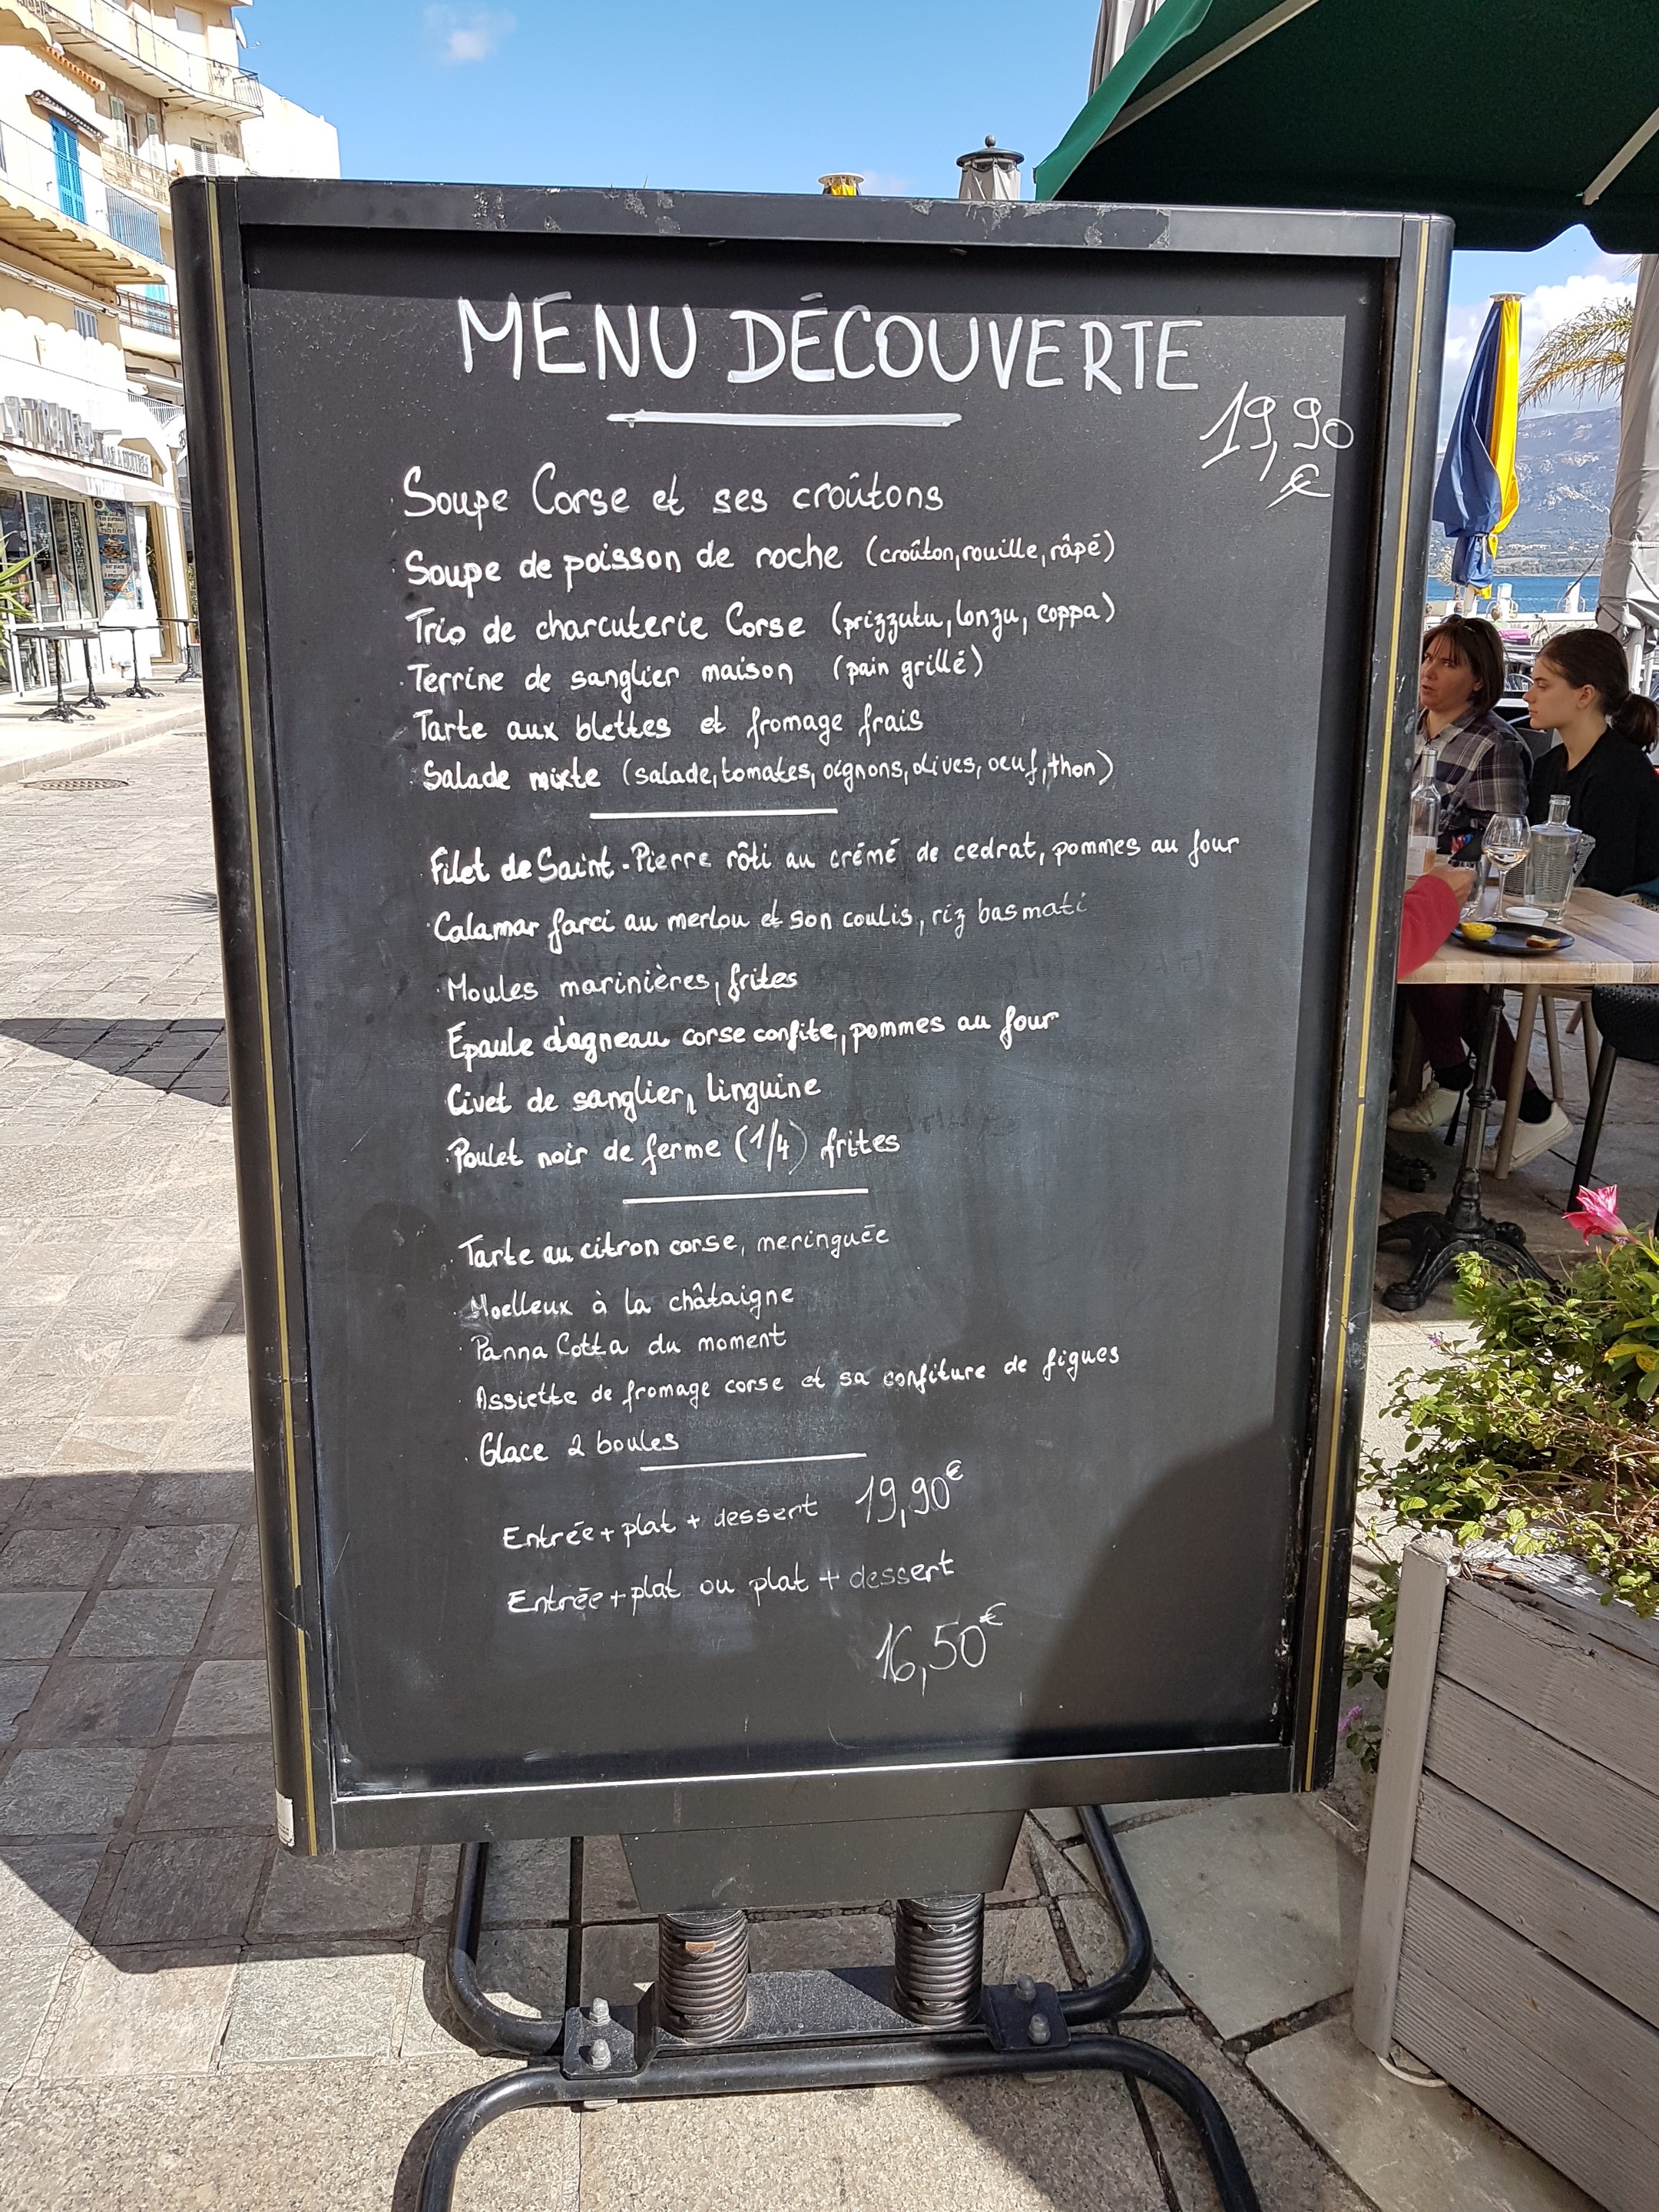 MENU DÉCOUVERTE
19,90
€
Soupe Corse et ses croûtons
Soupe de poisson de roche (croûton, rouille, râpé)
Trio de charcuterie Corse (prizzutu, lonzu, coppa)
Terrine de sanglier maison (pain grillé)
Tarte aux blettes et fromage frais
Salade mixte (salade, tomates, oignons, olives, oeuf, thon)
Filet de Saint-Pierre rôti au crémé de cedrat, pommes au four
Calamar farci au merlou et son coulis, riz basmati
Moules marinières, frites
Epaule d'agneau corse confite, pommes au four
Civet de sanglier, linguine
Poulet noir de ferme (1/4) frites
Tarte au citron corse, meringuée
Moelleux à la châtaigne
Panna Cotta du moment
Assiette de fromage corse et sa confiture de figues
Glace 2 boules
Entrée + plat + dessert 19,90€
Entrée + plat ou plat + dessert
16,50€